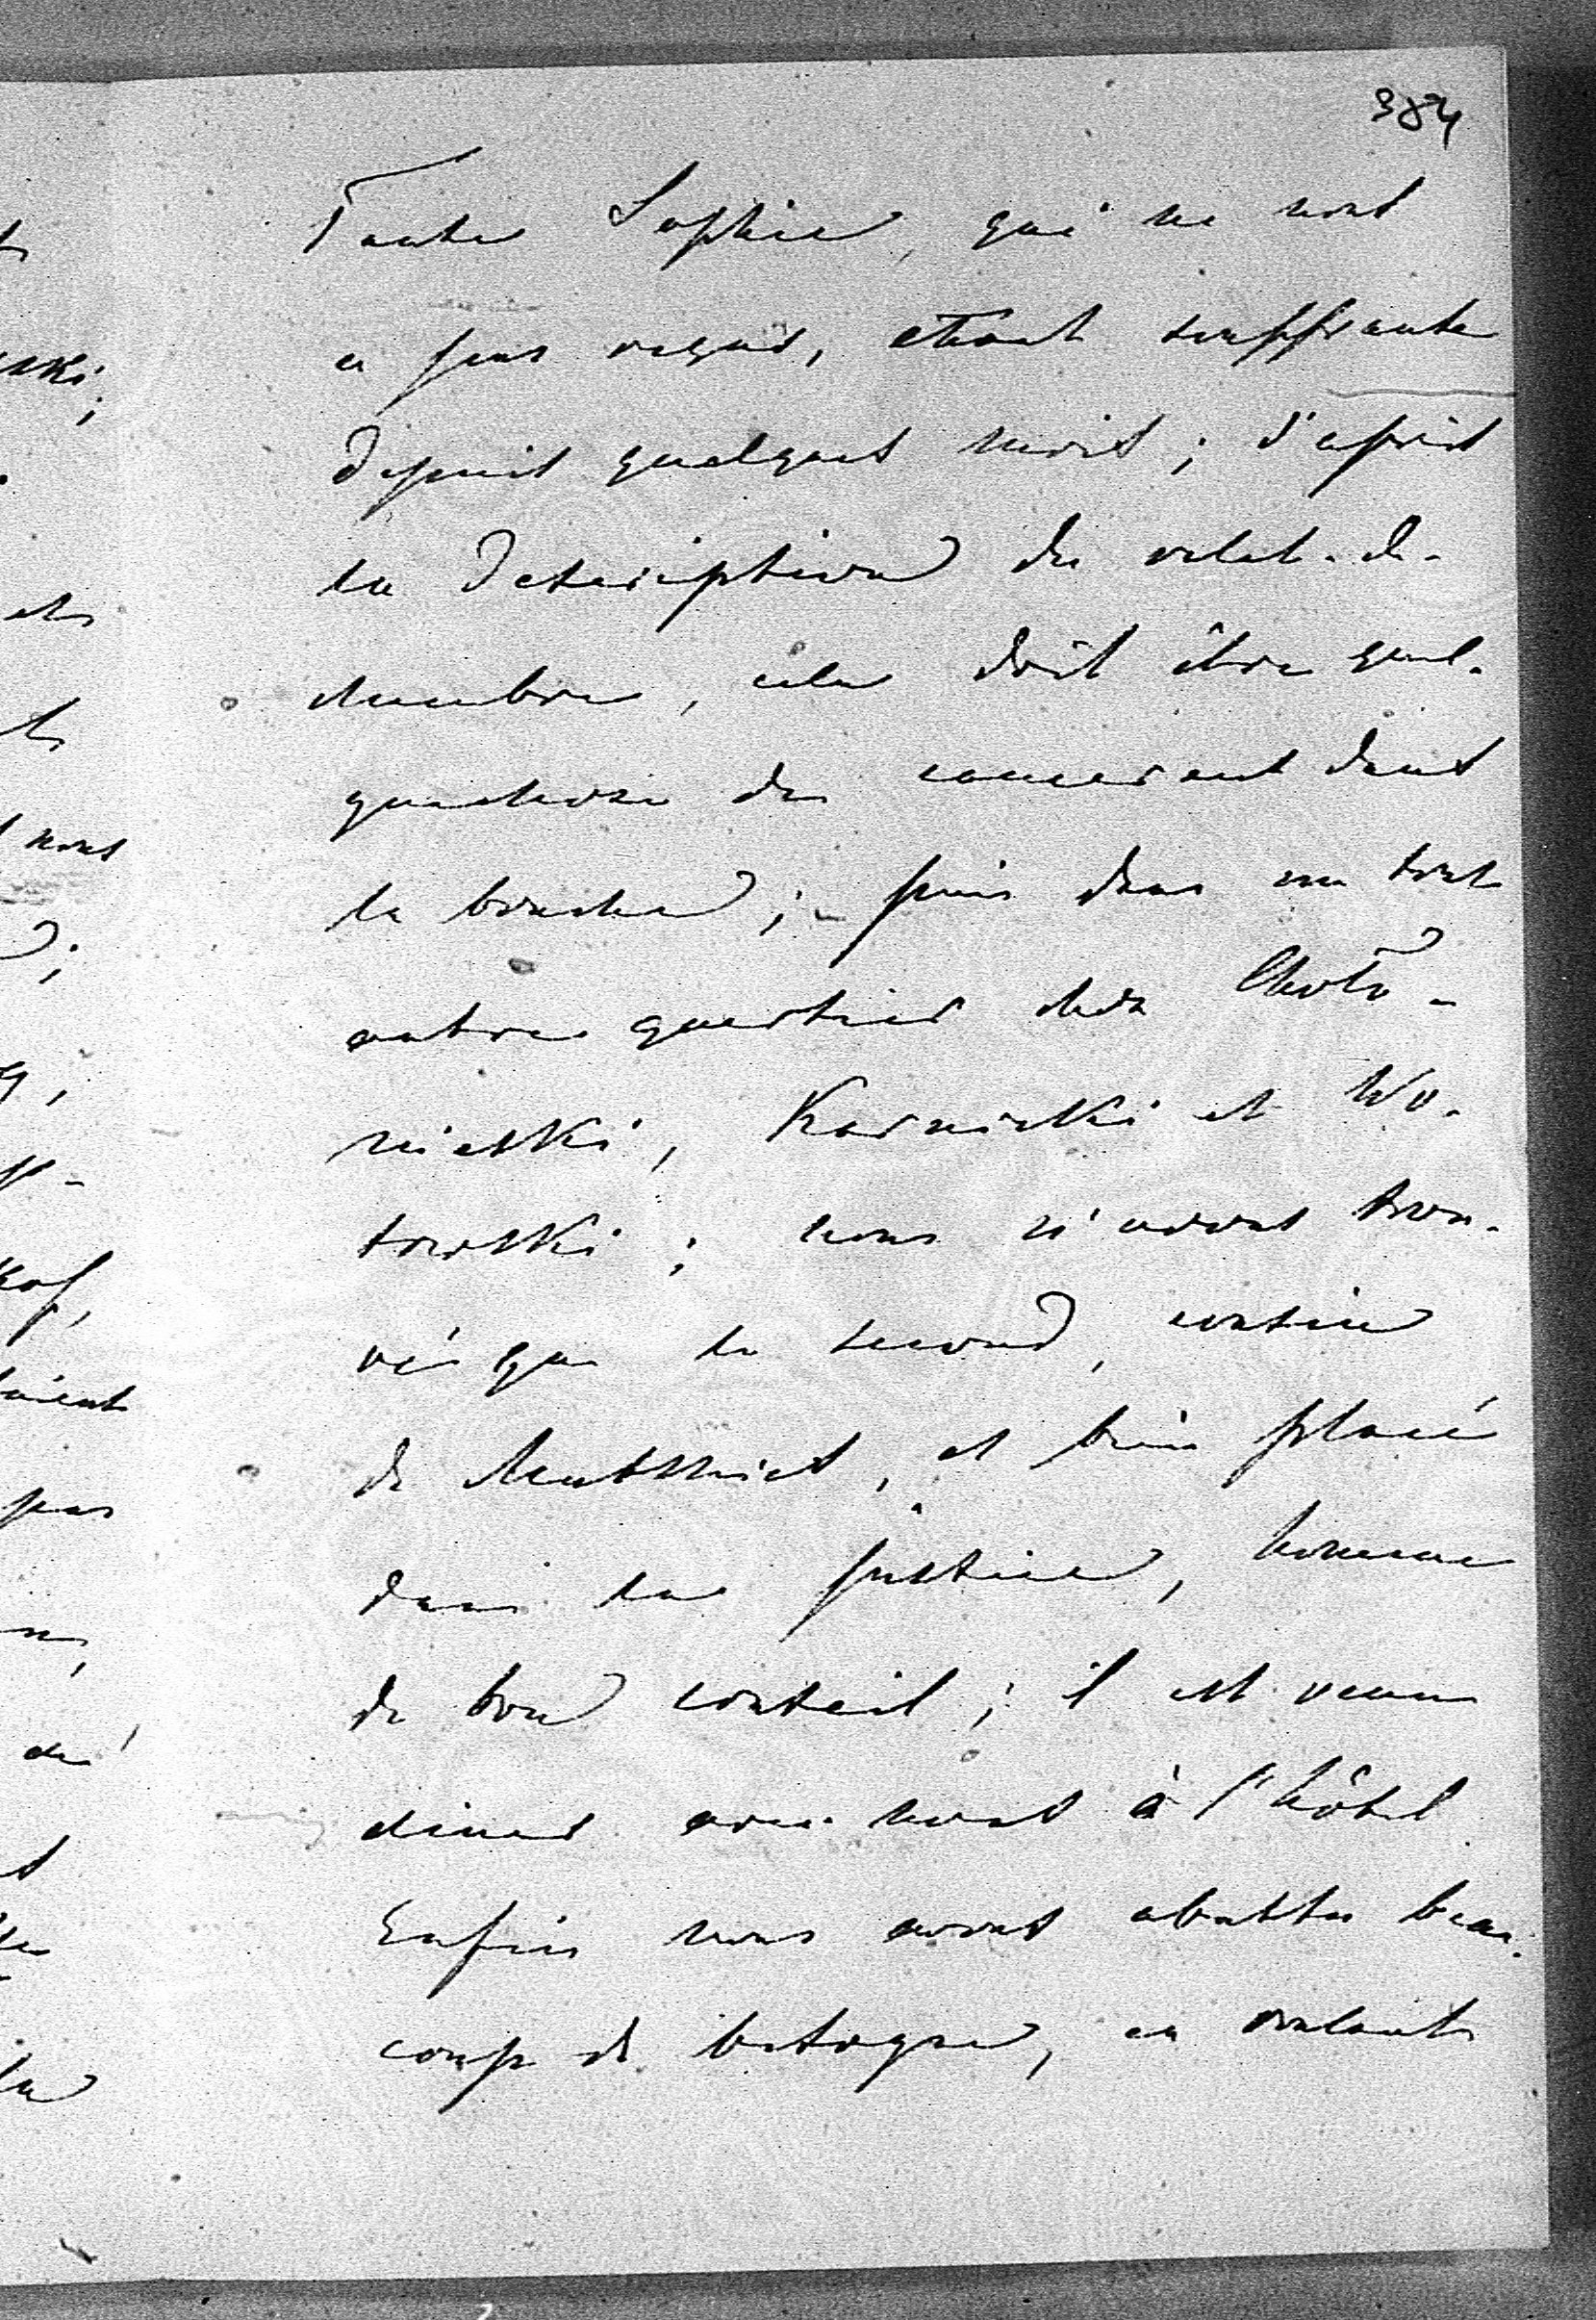 384
Tante Sophie, qui ne nous
a pas reçus, étant souffrante
depuis quelques mois ; d'après
la description du valet-de-
chambre, cela doit être quel-
que chose de cancereux dans
la bouche ; - puis dans un tout
autre quartier chez Choło-
niewski, Karnicki et Wo-
towski ; nous n'avons trou-
vé que le second, cousin
de Matthias, et bien placé
dans la justice, homme
de bon conseil ; il est venu
diner avec nous à l'hôtel.
Enfin nous avons abattu beau-
coup de besogne, en roulant